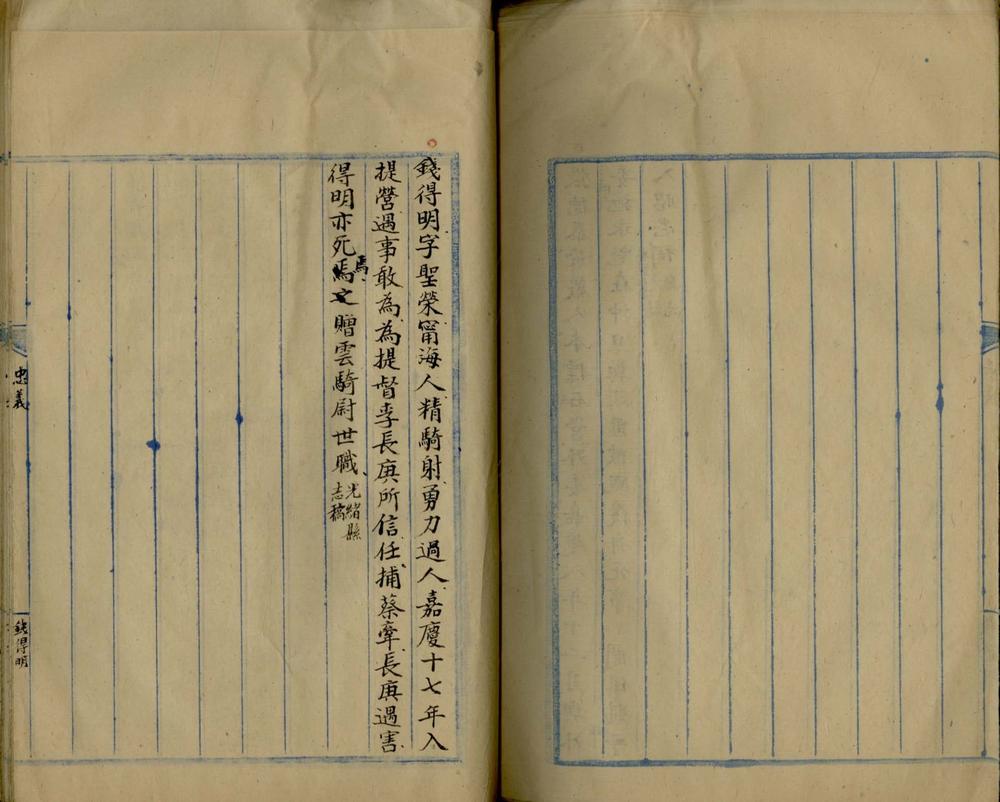 錢得明字聖榮甯海人精騎射勇力過人嘉慶十七年入
提營遇事敢為為提督李長庚所信任捕蔡牽長庚遇害
得明亦死焉贈雲騎尉世職光緒縣
志稿
忠義
錢得明